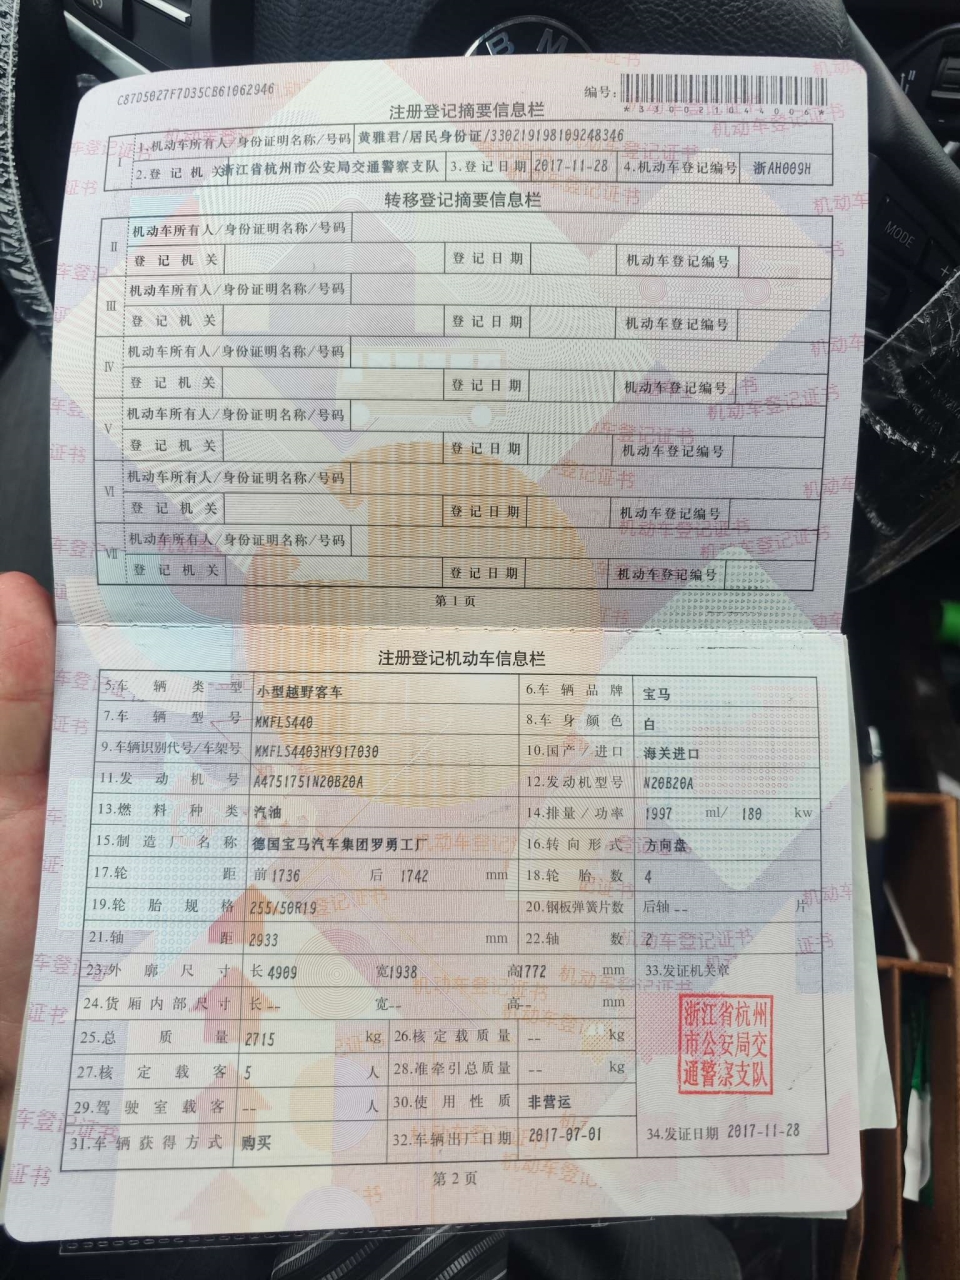 B M
C87D5027F7D35CB61062946
编号:
*330021044006*
注册登记摘要信息栏
I 1.机动车所有人/身份证明名称/号码 黄雅君/居民身份证/330219198109248346
2.登记机关 浙江省杭州市公安局交通警察支队 3.登记日期 2017-11-28 4.机动车登记编号 浙AH009H
转移登记摘要信息栏
II 机动车所有人/身份证明名称/号码
登记机关 登记日期 机动车登记编号
III 机动车所有人/身份证明名称/号码
登记机关 登记日期 机动车登记编号
IV 机动车所有人/身份证明名称/号码
登记机关 登记日期 机动车登记编号
V 机动车所有人/身份证明名称/号码
登记机关 登记日期 机动车登记编号
VI 机动车所有人/身份证明名称/号码
登记机关 登记日期 机动车登记编号
VII 机动车所有人/身份证明名称/号码
登记机关 登记日期 机动车登记编号
第1页
MODE
注册登记机动车信息栏
5.车辆类型 小型越野客车 6.车辆品牌 宝马
7.车辆型号 MMFLS440 8.车身颜色 白
9.车辆识别代号/车架号 MMFLS4403HY917030 10.国产/进口 海关进口
11.发动机号 A4751751N20B20A 12.发动机型号 N20B20A
13.燃料种类 汽油 14.排量/功率 1997 ml/ 180 kw
15.制造厂名称 德国宝马汽车集团罗勇工厂 16.转向形式 方向盘
17.轮距 前1736 后1742 mm 18.轮胎数 4
19.轮胎规格 255/50R19 20.钢板弹簧片数 后轴-- 片
21.轴距 2933 mm 22.轴数 2
23.外廓尺寸 长4909 宽1938 高1772 mm 33.发证机关章
24.货厢内部尺寸 长-- 宽-- 高-- mm
浙江省杭州
市公安局交
通警察支队
25.总质量 2715 kg 26.核定载质量 -- kg
27.核定载客 5 人 28.准牵引总质量 -- kg
29.驾驶室载客 -- 人 30.使用性质 非营运
31.车辆获得方式 购买 32.车辆出厂日期 2017-07-01 34.发证日期 2017-11-28
第2页